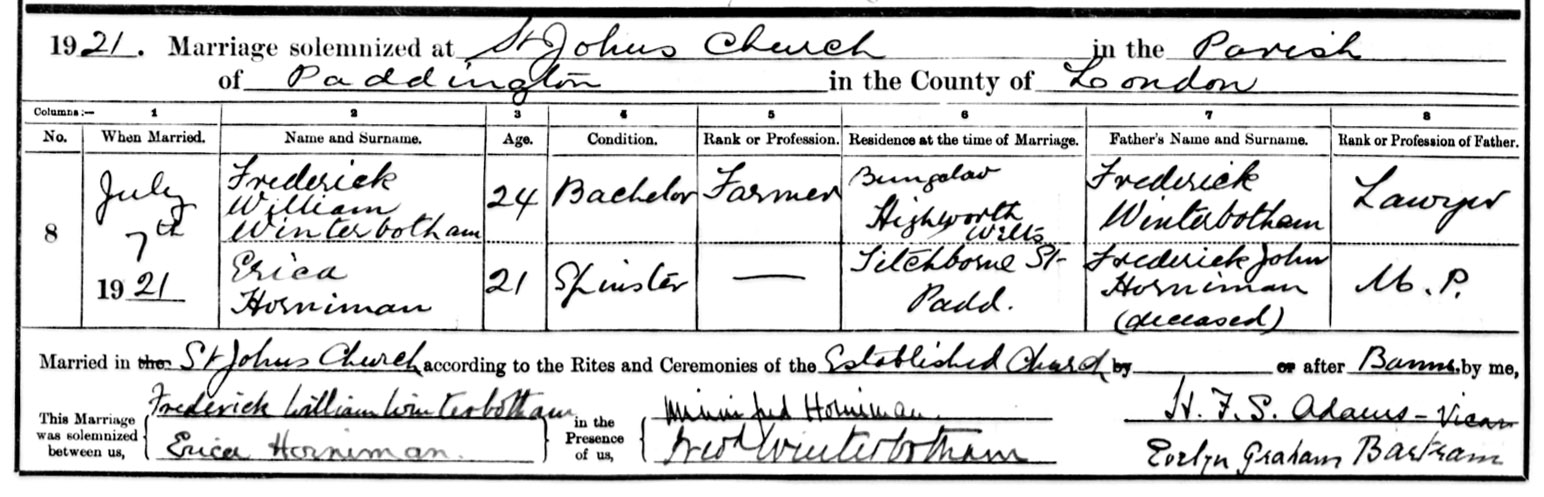 1921. Marriage solemnized at St Johns Church in the Parish
of Paddington in the County of London
Columns:— 1 2 3 4 5 6 7 8
No. When Married. Name and Surname. Age. Condition. Rank or Profession. Residence at the time of Marriage. Father's Name and Surname. Rank or Profession of Father.
8 July 7th 1921 Frederick William Winterbotham 24 Bachelor Farmer Bungalow Highworth Wilts Frederick Winterbotham Lawyer
Erica Horniman 21 Spinster — Titchborne St Padd. Frederick John Horniman (deceased) M.P.
Married in the St Johns Church according to the Rites and Ceremonies of the Established Church by or after Banns, by me,
This Marriage was solemnized between us, Frederick William Winterbotham Erica Horniman in the Presence of us, Minnifred Horniman Fred Winterbotham H. F. S. Adams - Vicar
Evelyn Graham Bartram